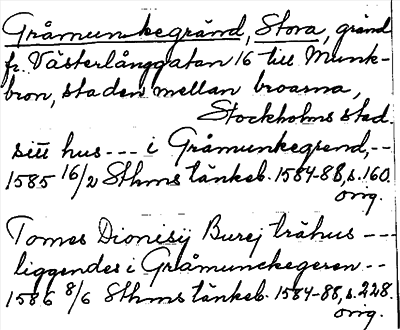 Gråmunkegränd, Stora, gränd
fr. Västerlånggatan 16 till Munk-
bron, staden mellan broarna,
Stockholms stad.
sitt hus --- i Gråmunkegrend, --
1585 16/2 Sthms tänkeb. 1584-88, s. 160.
orig.
Tomes Dionisij Burej trähus ---
liggendes i Gråmunckegeren --
1586 8/6 Sthms tänkeb. 1584-88, s. 228.
orig.